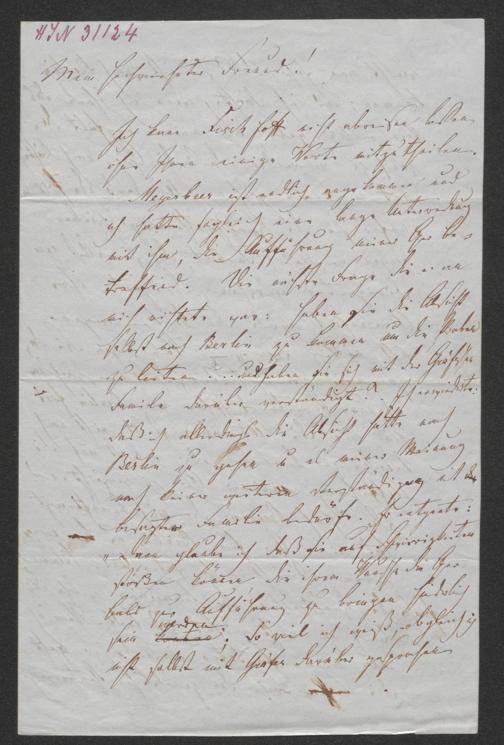 HIN 31124
Mein hochverehrter Freund!
Ich kann Fischhoff nicht abreisen lassen
ohne Ihnen einige Worte mitzutheilen.
Meyerbeer ist endlich angekommen und
ich hatte sogleich eine lange Unterredung
mit ihm, die Aufführung meiner Oper be-
treffend. Die erste Frage die er an
mich richtete war: haben Sie die Absicht
selbst nach Berlin zu kommen um die Proben
zu leiten ... und haben Sie sich mit der
Familie darüber verständigt? Ich erwiederte:
daß ich allerdings die Absicht hätte nach
Berlin zu gehen u es meiner Meinung
nach keiner weiteren Verständigung mit der
besagten Familie bedürfe. Er entgegnete:
nun glaube ich daß Sie auf Schwierigkeiten
stoßen können die Ihrem Wunsche die Oper
bald zur Aufführung zu bringen hinderlich
sein werden! So viel ich weiß, obgleich ich
nicht selbst mit darüber gesprochen